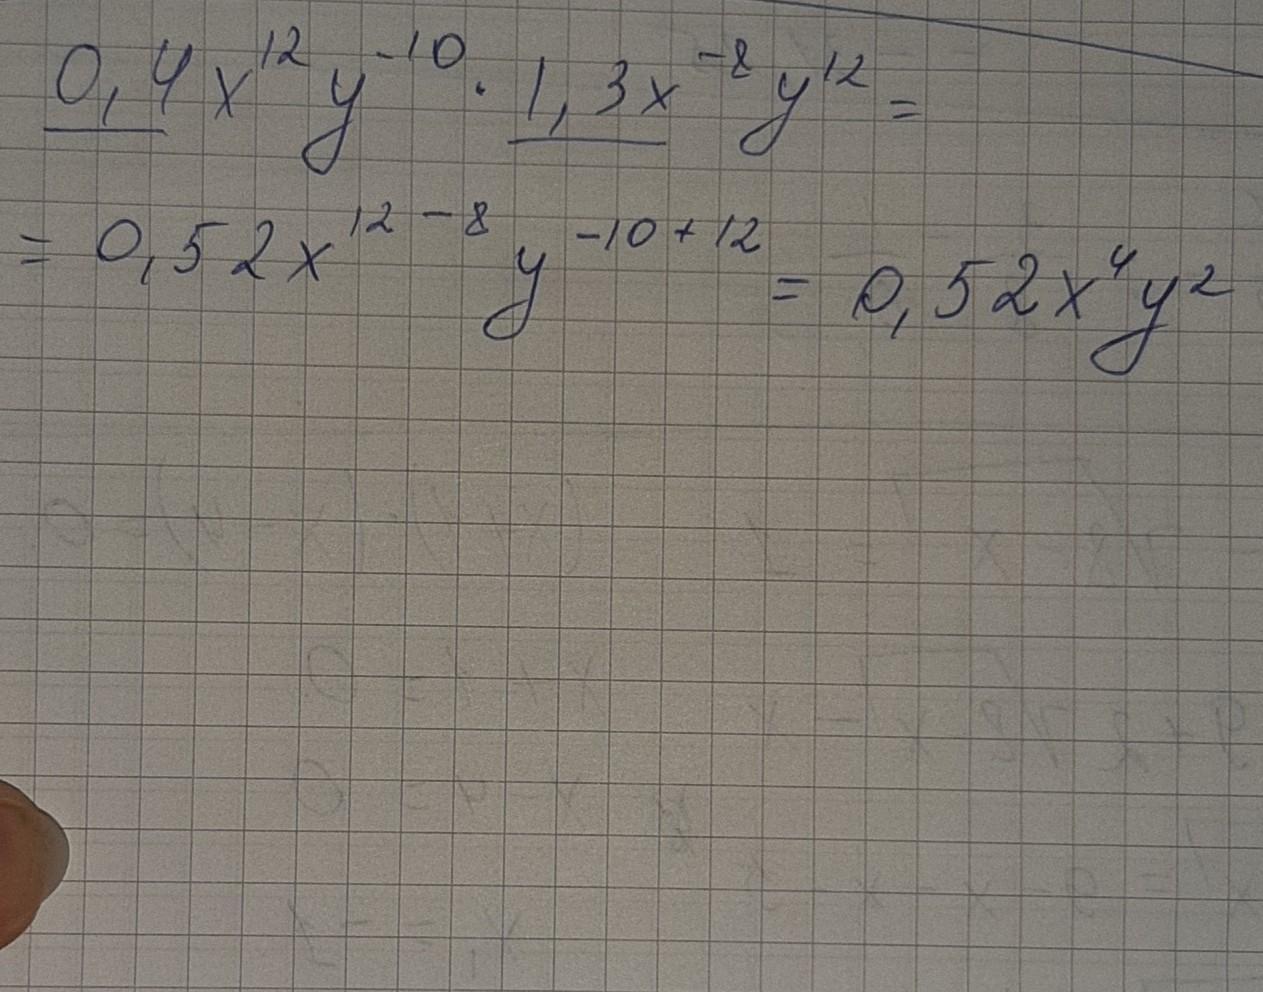 0,4x¹²y⁻¹⁰ · 1,3x⁻⁸y¹² =
= 0,52x¹²⁻⁸y⁻¹⁰⁺¹² = 0,52x⁴y²